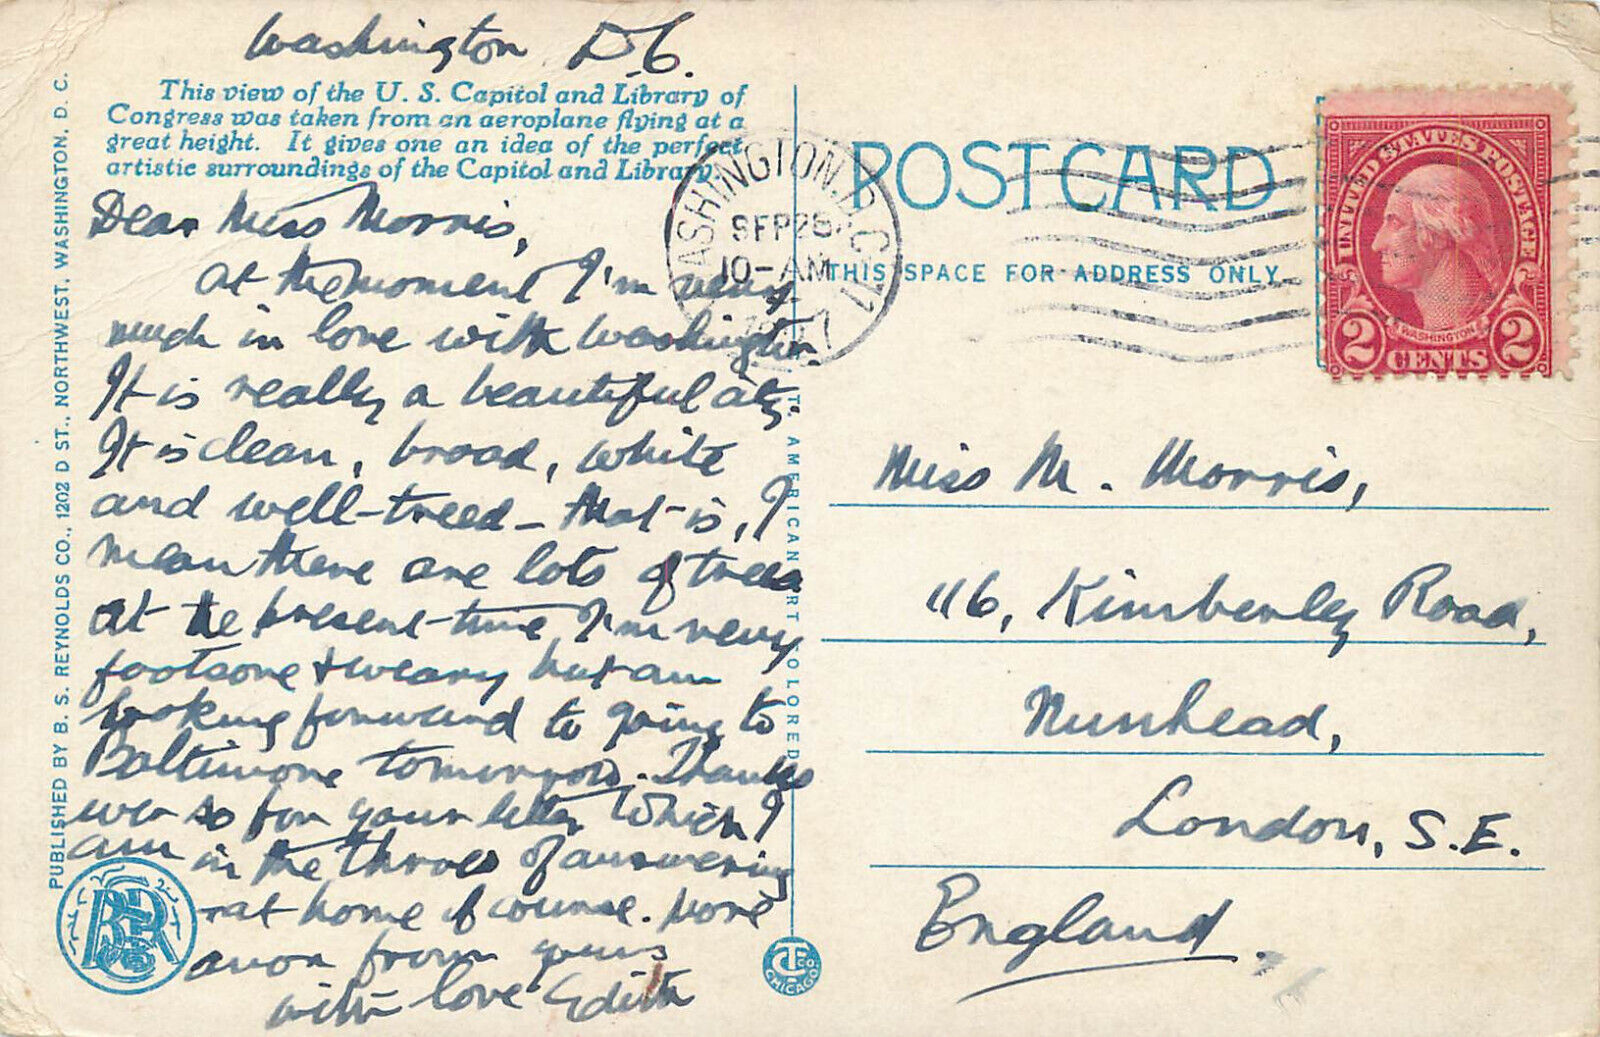 Washington D.C.
This view of the U. S. Capitol and Library of
Congress was taken from an aeroplane flying at a
great height. It gives one an idea of the perfect
artistic surroundings of the Capitol and Library.
Dear Miss Morris,
at the moment I'm very
much in love with Washington.
It is really a beautiful city.
It is clean, broad, white
and well-treed - that is, I
mean there are lots of trees
At the present time I'm very
footsore & weary but am
looking forward to going to
Baltimore tomorrow. Thanks
ever so for your letter which I
am in the throes of answering
at home of course. More
anon from yours
with love Edith
PUBLISHED BY B. S. REYNOLDS CO., 1202 D ST., NORTHWEST, WASHINGTON, D. C.
BSR
AMERICAN ART COLORED
CTCO. CHICAGO.
WASHINGTON, D.C.
SEP 28
10-AM
POSTCARD
THIS SPACE FOR ADDRESS ONLY
UNITED STATES POSTAGE
WASHINGTON
2 CENTS 2
Miss M. Morris,
116, Kimberley Road,
Nunhead,
London, S.E.
England.